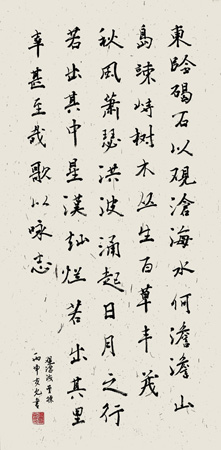 東臨碣石以觀滄海水何澹澹山
島竦峙樹木丛生百草丰茂
秋風蕭瑟洪波涌起日月之行
若出其中星漢灿爛若出其里
幸甚至哉歌以咏志
觀滄海曹操
丙申書